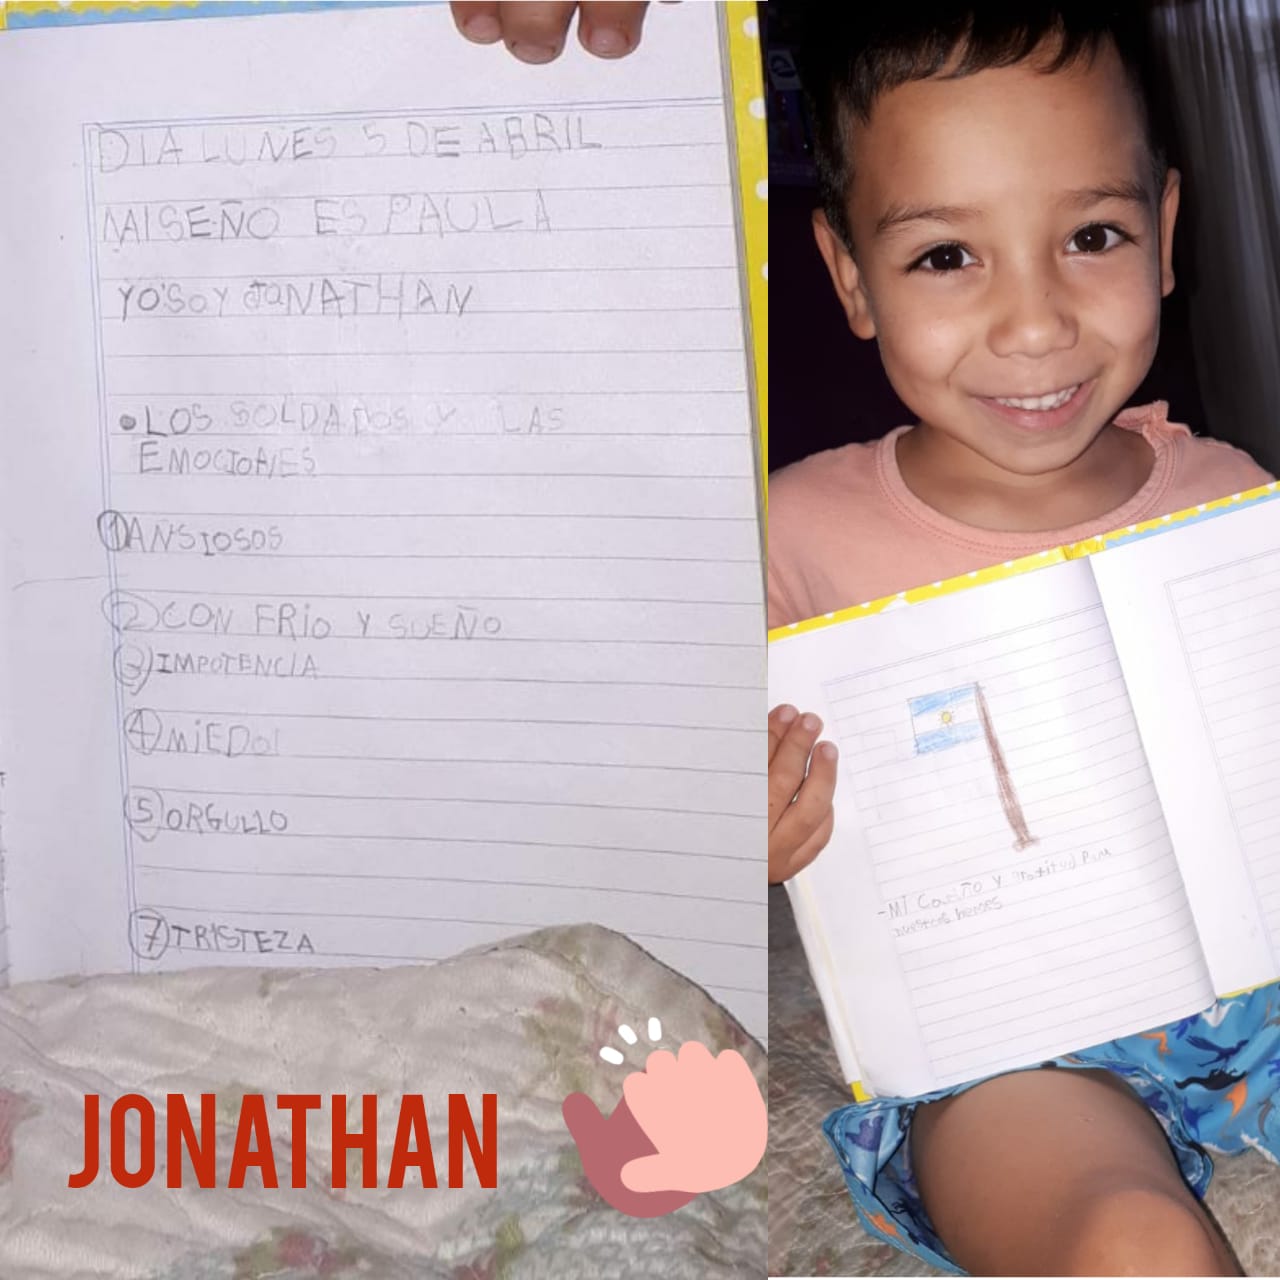 DIA LUNES 5 DE ABRIL
MI SEÑO ES PAULA
YO SOY JONATHAN
•LOS SOLDADOS Y LAS
EMOCIONES
1 ANSIOSOS
2 CON FRIO Y SUEÑO
3 IMPOTENCIA
4 MIEDO
5 ORGULLO
7 TRISTEZA
JONATHAN
-Mi Cariño y gratitud Para
nuestros heroes